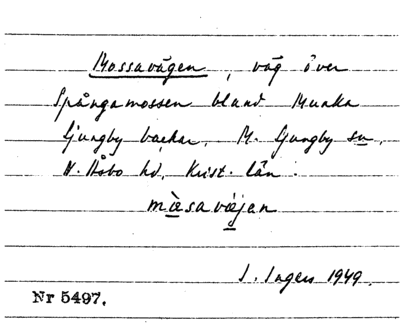 Mossavägen, väg över
Spångamossen bland Munka
Ljungby backar, M. Ljungby sn,
N. Åsbo hd, Krist. län.
mässavæjan
I. Ingers 1949.
Nr 5497.